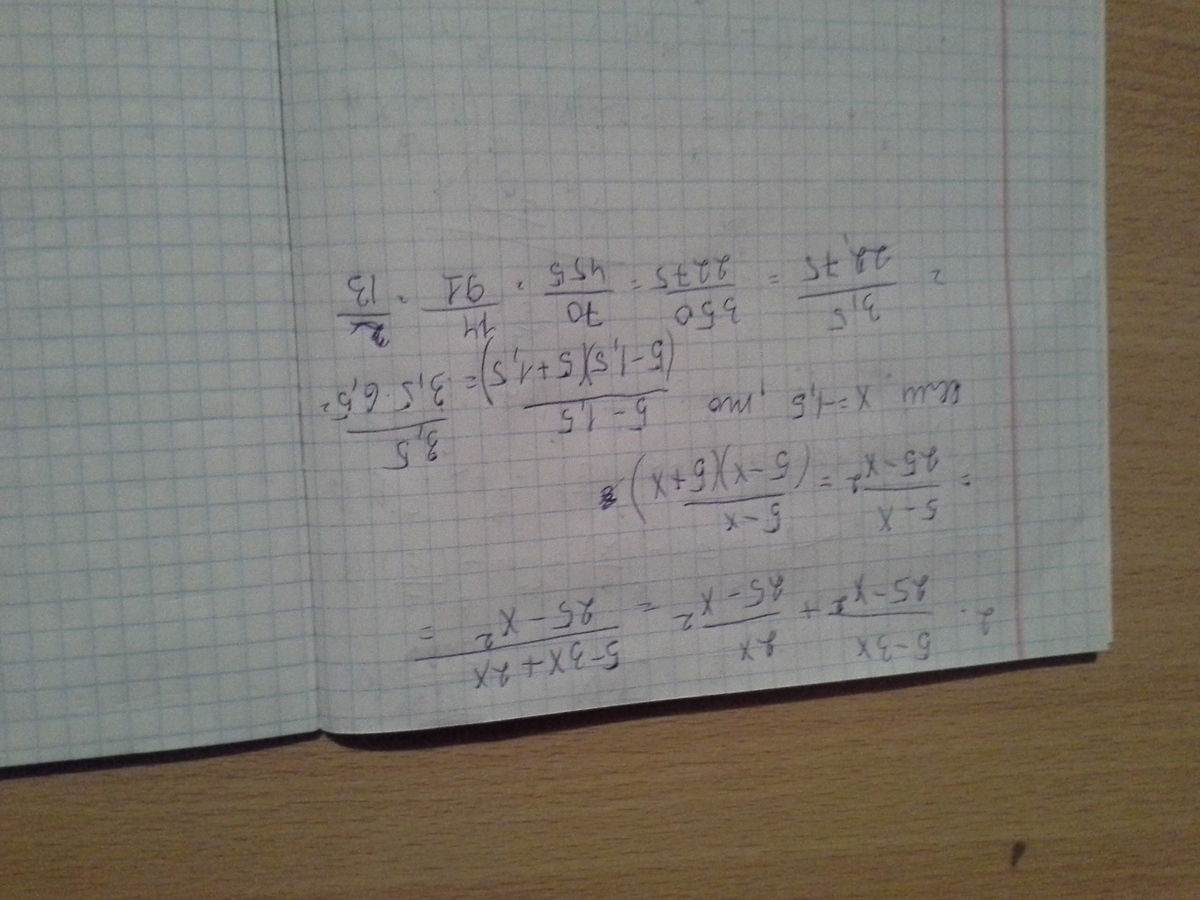 2. (5-3x)/(25-x²) + 2x/(25-x²) = (5-3x+2x)/(25-x²) =
= (5-x)/(25-x²) = (5-x)/((5-x)(5+x))
если x=-1,5, то (5-1,5)/((5-1,5)(5+1,5)) = 3,5/(3,5·6,5) =
= 3,5/22,75 = 350/2275 = 70/455 = 14/91 = 2/13